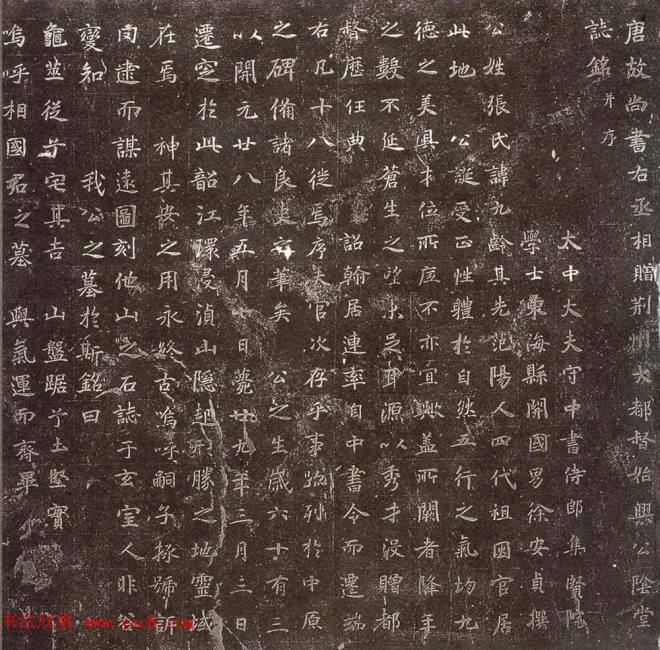 唐故尚書右丞相贈荆州大都督始興公陰堂
誌銘并序
太中大夫守中書侍郎集賢院
學士東海縣開國男徐安貞撰
公姓張氏諱九齡其先范陽人四代祖因官居
此地 公誕受正性體於自然五行之氣均九
德之美具才位所底不亦宜歟蓋所闕者降年
之數不延蒼生之望未足耳源以秀才没贈都
督歷任典 詔翰居連率自中書令而遷端
右凡十八徙焉序夫官次存乎事迹列於中原
之碑備諸良史之筆矣 公之生歲六十有三
以開元廿八年五月七日薨廿九年三月三日
遷窆於此韶江環浸湞山隱起形勝之地靈域
在焉 神其安之用永終古嗚呼嗣子拯號訴
罔逮而謀遠圖刻他山之石誌于玄室人非谷
變知 我公之墓於斯銘曰
龜筮從兮宅其吉 山盤踞兮土堅實
嗚呼相國君之墓 與氣運而齊畢
书法欣赏 www.yac8.com